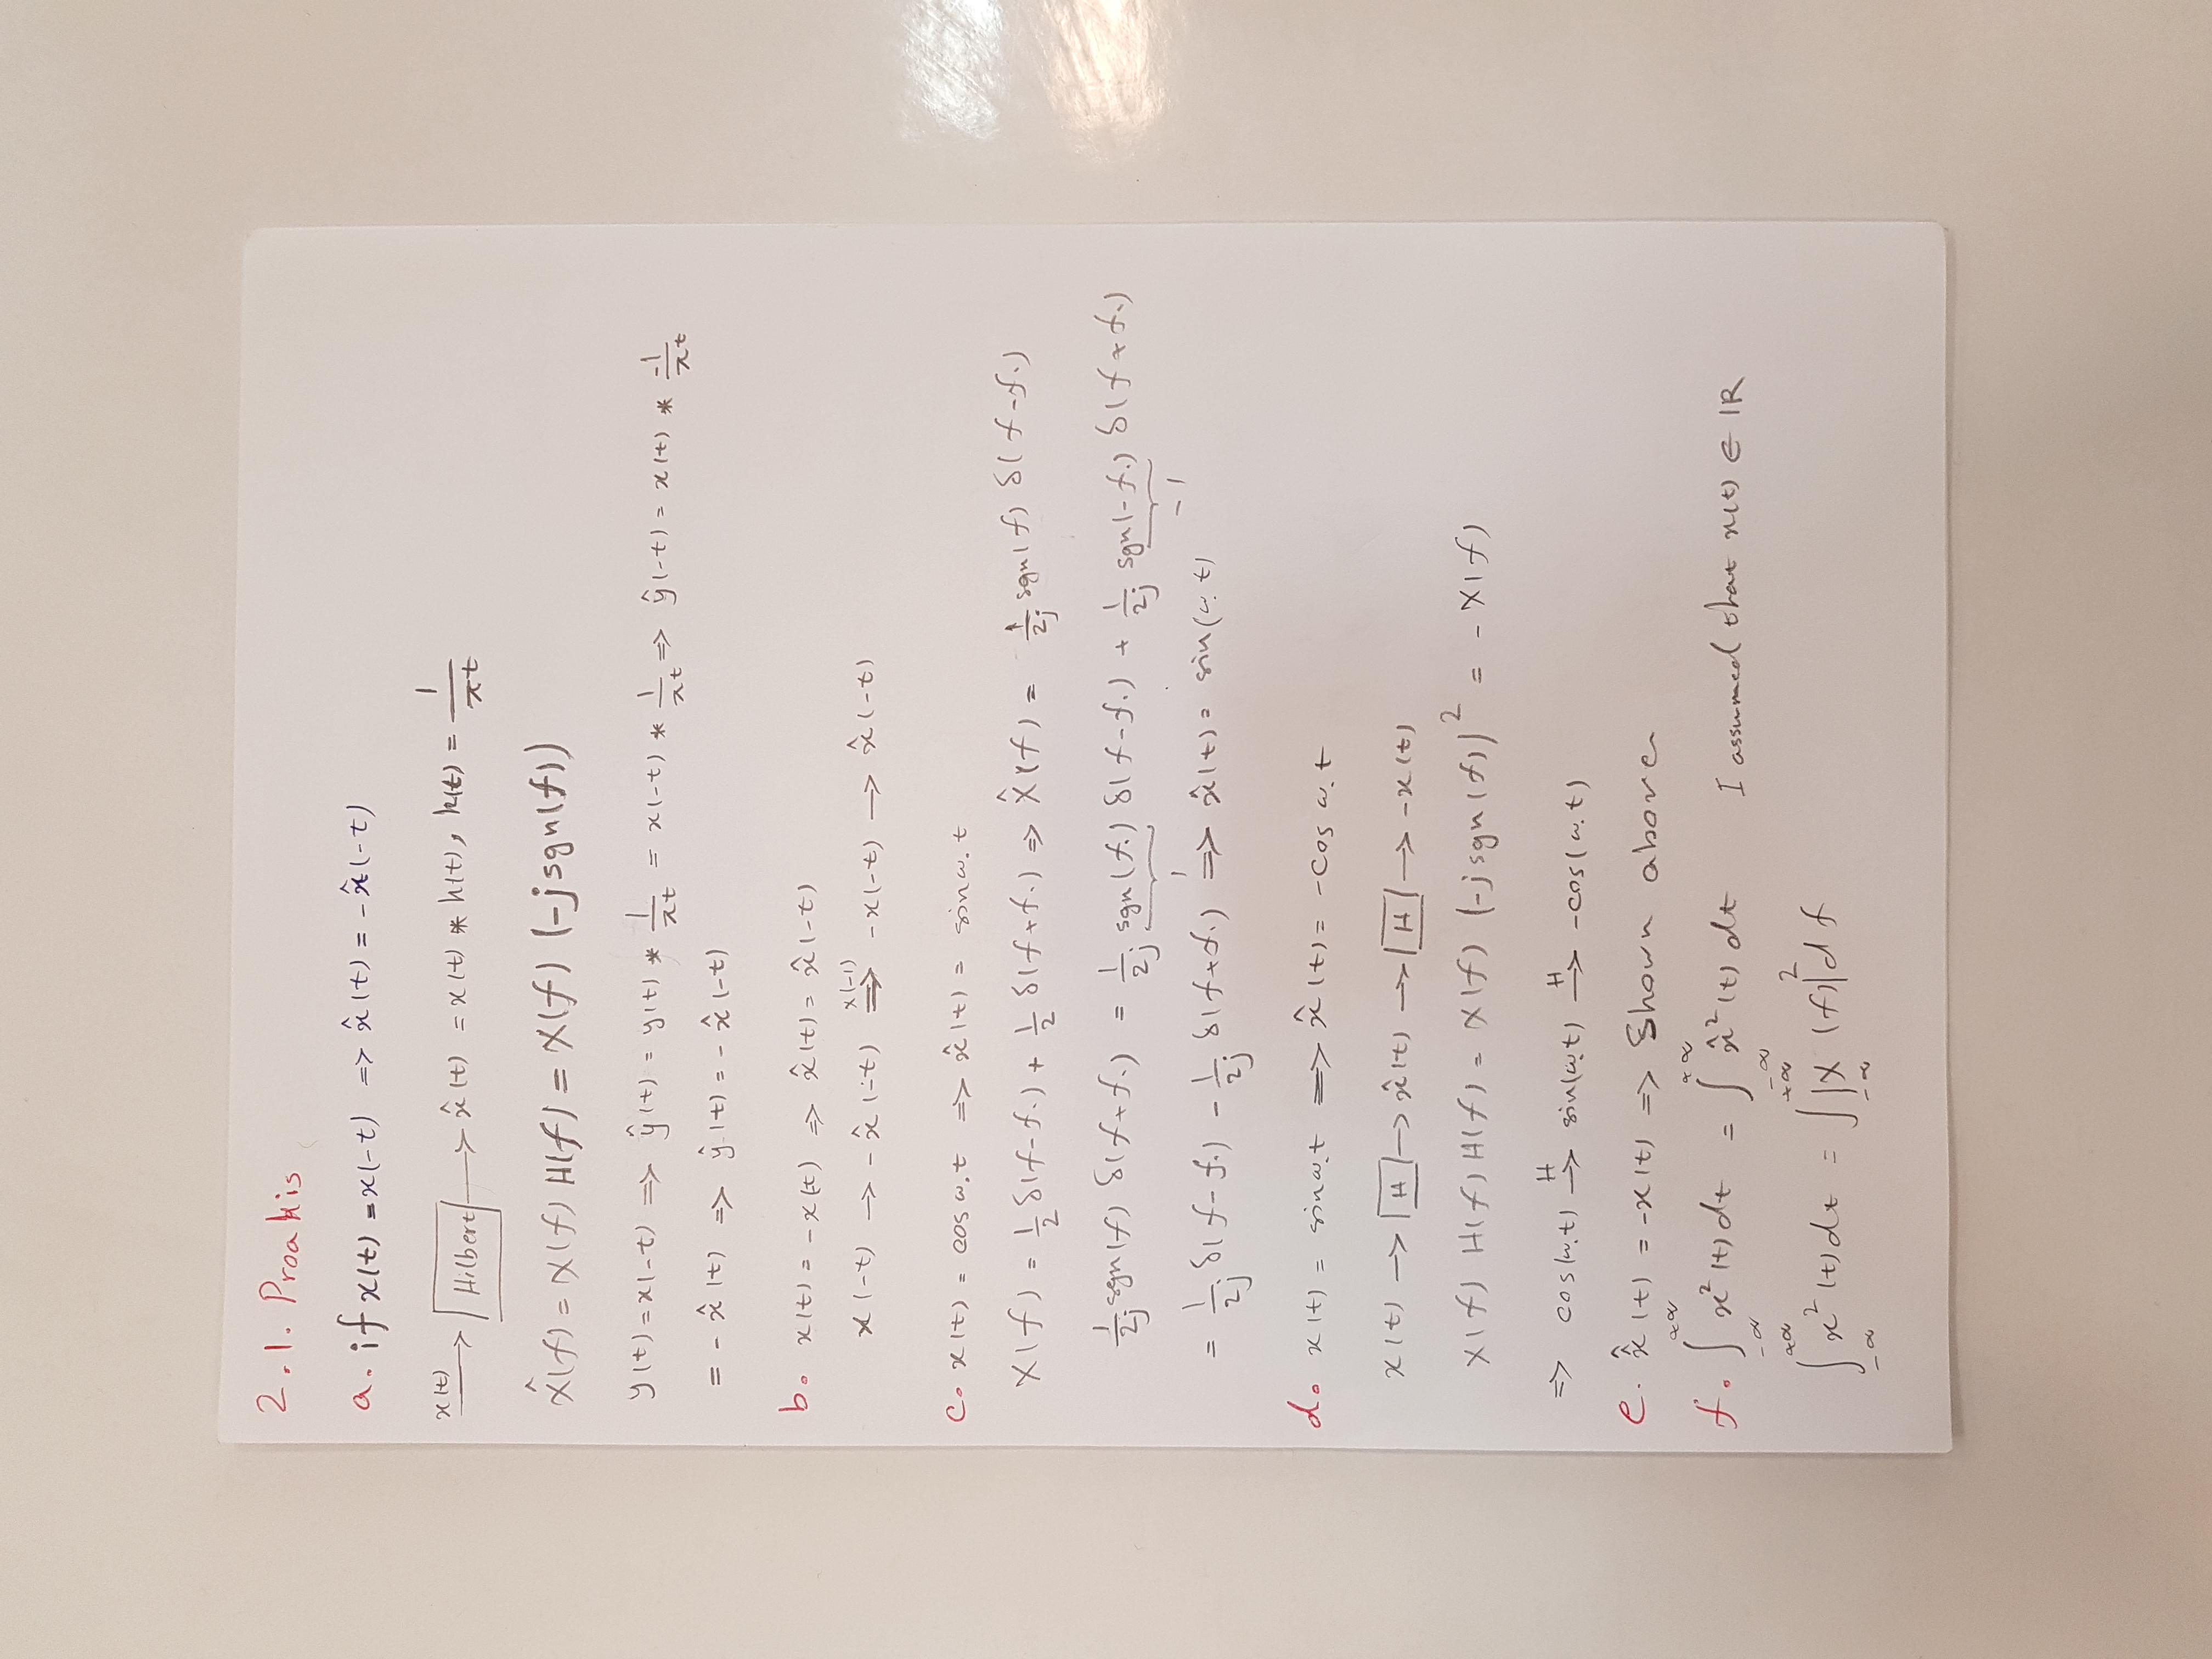 2.1. Proakis
a. if x(t) = x(-t) => x̂(t) = -x̂(-t)
x(t) → Hilbert → x̂(t) = x(t) * h(t), h(t) = 1/πt
X̂(f) = X(f) H(f) = X(f) (-j sgn(f))
y(t) = x(-t) => ŷ(t) = y(t) * 1/πt = x(-t) * 1/πt => ŷ(-t) = x(t) * -1/πt
= - x̂(t) => ŷ(t) = - x̂(-t)
b. x(t) = -x(-t) => x̂(t) = x̂(-t)
x(-t) → -x̂(-t) =x(-1)=> -x(-t) → x̂(-t)
c. x(t) = cos ω.t => x̂(t) = sin ω.t
X(f) = 1/2 δ(f-f.) + 1/2 δ(f+f.) => X̂(f) = 1/2j sgn(f) δ(f-f.)
1/2j sgn(f) δ(f+f.) = 1/2j sgn(f.) δ(f-f.) + 1/2j sgn(-f.) δ(f+f.)
1 -1
= 1/2j δ(f-f.) - 1/2j δ(f+f.) => x̂(t) = sin(ω.t)
d. x(t) = sin ω.t => x̂(t) = -cos ω.t
x(t) → H → x̂(t) → H → -x(t)
X(f) H(f) H(f) = X(f) (-j sgn(f))² = - X(f)
=> cos(ω.t) →H sin(ω.t) →H -cos(ω.t)
e. x̂̂(t) = -x(t) => Shown above
f. ∫_{-∞}^{+∞} x²(t) dt = ∫_{-∞}^{+∞} x̂²(t) dt I assumed that x(t) ∈ IR
∫_{-∞}^{+∞} x²(t) dt = ∫_{-∞}^{+∞} |X(f)|² df